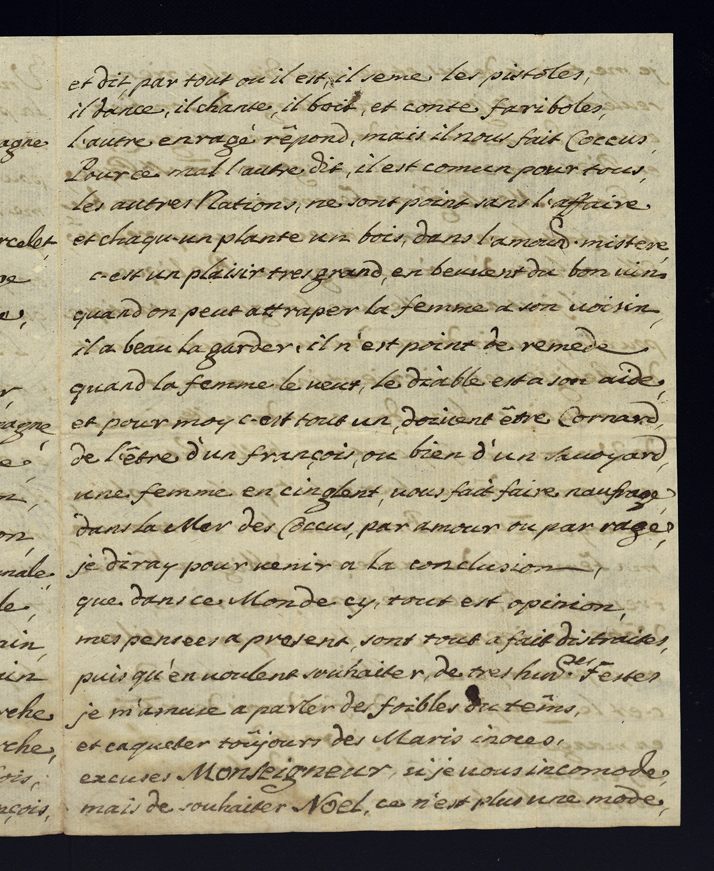 et dit par tout ou il est, il seme les pistoles,
il dance, il chante, il boit, et conte fariboles,
l'autre enragé rêpond, mais il nous fait Coccus,
Pour ce mal l'autre dit, il est comun pour tous,
les autres Nations, ne sont point sans l'affaire
et chaqu-un plante un bois, dans l'amourd mistere,
c-est un plaisir tres grand, en beuvent du bon vin
quand on peut attraper la femme a son voisin,
il a beau la garder, il n'est point de remede
quand la femme le veut, le diable est a son aide,
et pour moy c-est tout un, doivent être Cornard,
de l'être d'un françois, ou bien d'un Savoyard,
une femme en cinglent, vous fait faire naufrage,
dans la Mer des Coccus, par amour ou par rage,
je diray pour venir a la conclusion,
que dans ce Monde cy, tout est opinion,
mes pensees a present, sont tout a fait distraites,
puis qu'en voulent souhaiter, de tres Festes
je m'amuse a parler des foibles du tems,
et caqueter toûjours des Maris
excuses Monseigneur, si je vous incomode,
mais de souhaiter Noel, ce n'est plus une mode,
agne
rcelet,
e,
r,
agne,
n,
on,
nale,
le,
ain,
ain
rche
rche,
ois,
nçois,